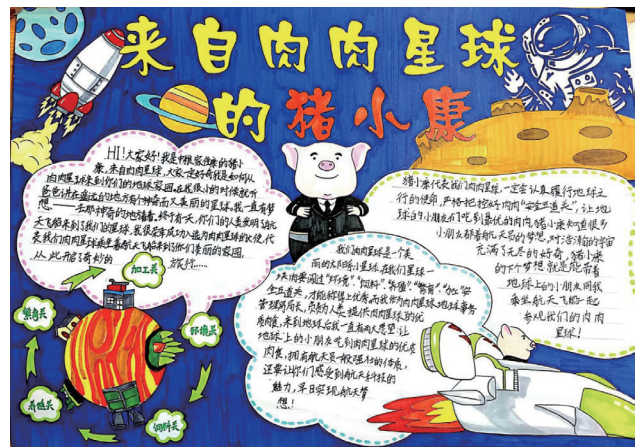 来自肉肉星球
的猪小康
HI!大家好!我是中粮家佳康的猪小
康,来自肉肉星球,大家一定好奇我是如何从
肉肉星球来到你们的地球家园。在我很小的时候就听
爸爸讲在遥远的地方有个神奇而又美丽的星球,我一直有梦
想——去那神奇的地球看看。终于有一天,你们的人类发明了航
天飞船来到了我们的星球,我很荣幸成为入选为肉肉星球的大使,代
表我们肉肉星球乘坐着航天飞船来到你们美丽的家园,
从此开启了奇妙的 旅行……
加工关
环境关
饲料关
养殖关
繁育关
我们肉肉星球是一个美
丽的太阳系小星球,在我们星球一
块肉要闯过“环境”、“饲料”、“养殖”、“繁育”、“加工”安
全五道关,才能称得上优秀,而我作为肉肉星球地球事务
管理局局长,负责为人类提供肉肉星球的优
质肉食,来到地球后我一直有两大愿望:让
地球上的小朋友吃到肉肉星球的优质
肉食,拥有航天员一般强壮的体质,
还要让你们感受到航天科技的
魅力,早日实现航天梦
想!
猪小康代表我们肉肉星球,一定会认真履行地球之
行的使命,严格把控好肉肉“安全五道关”,让地
球上的小朋友们吃到最优的肉肉,猪小康知道很多
小朋友都有航天员的梦想,对浩瀚的宇宙
充满了无尽的好奇,猪小康
的下个梦想就是把带着
地球上的小朋友同我
乘坐航天飞船一起
参观我们的肉肉
星球!